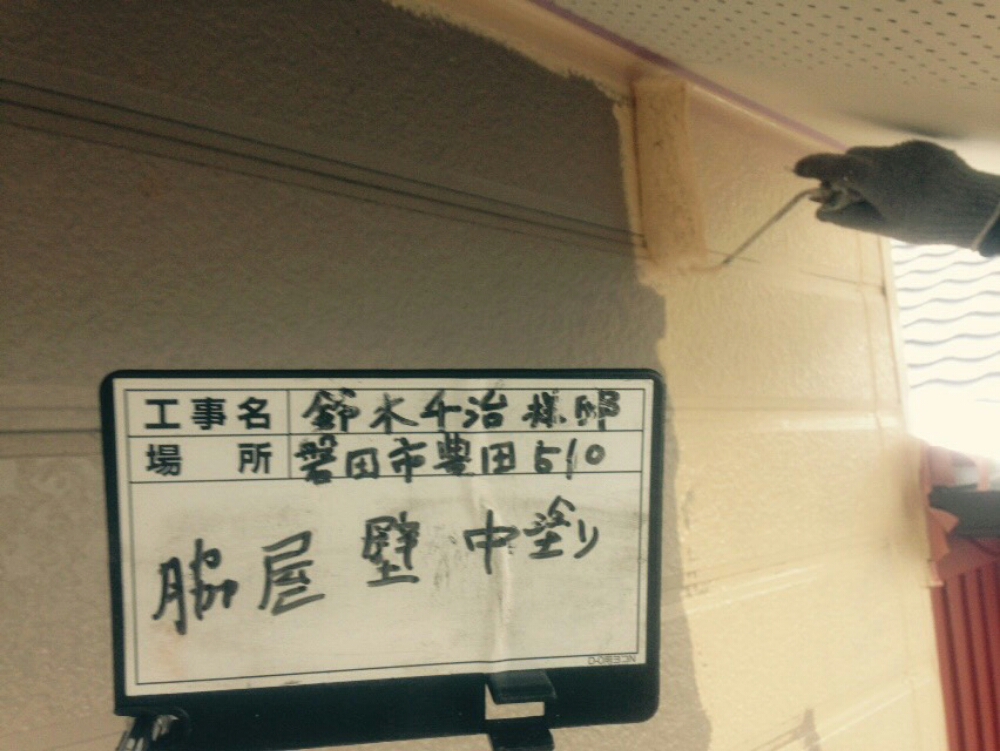 工事名 鈴木千治様邸
場所 磐田市豊田510
脇屋 壁 中塗り